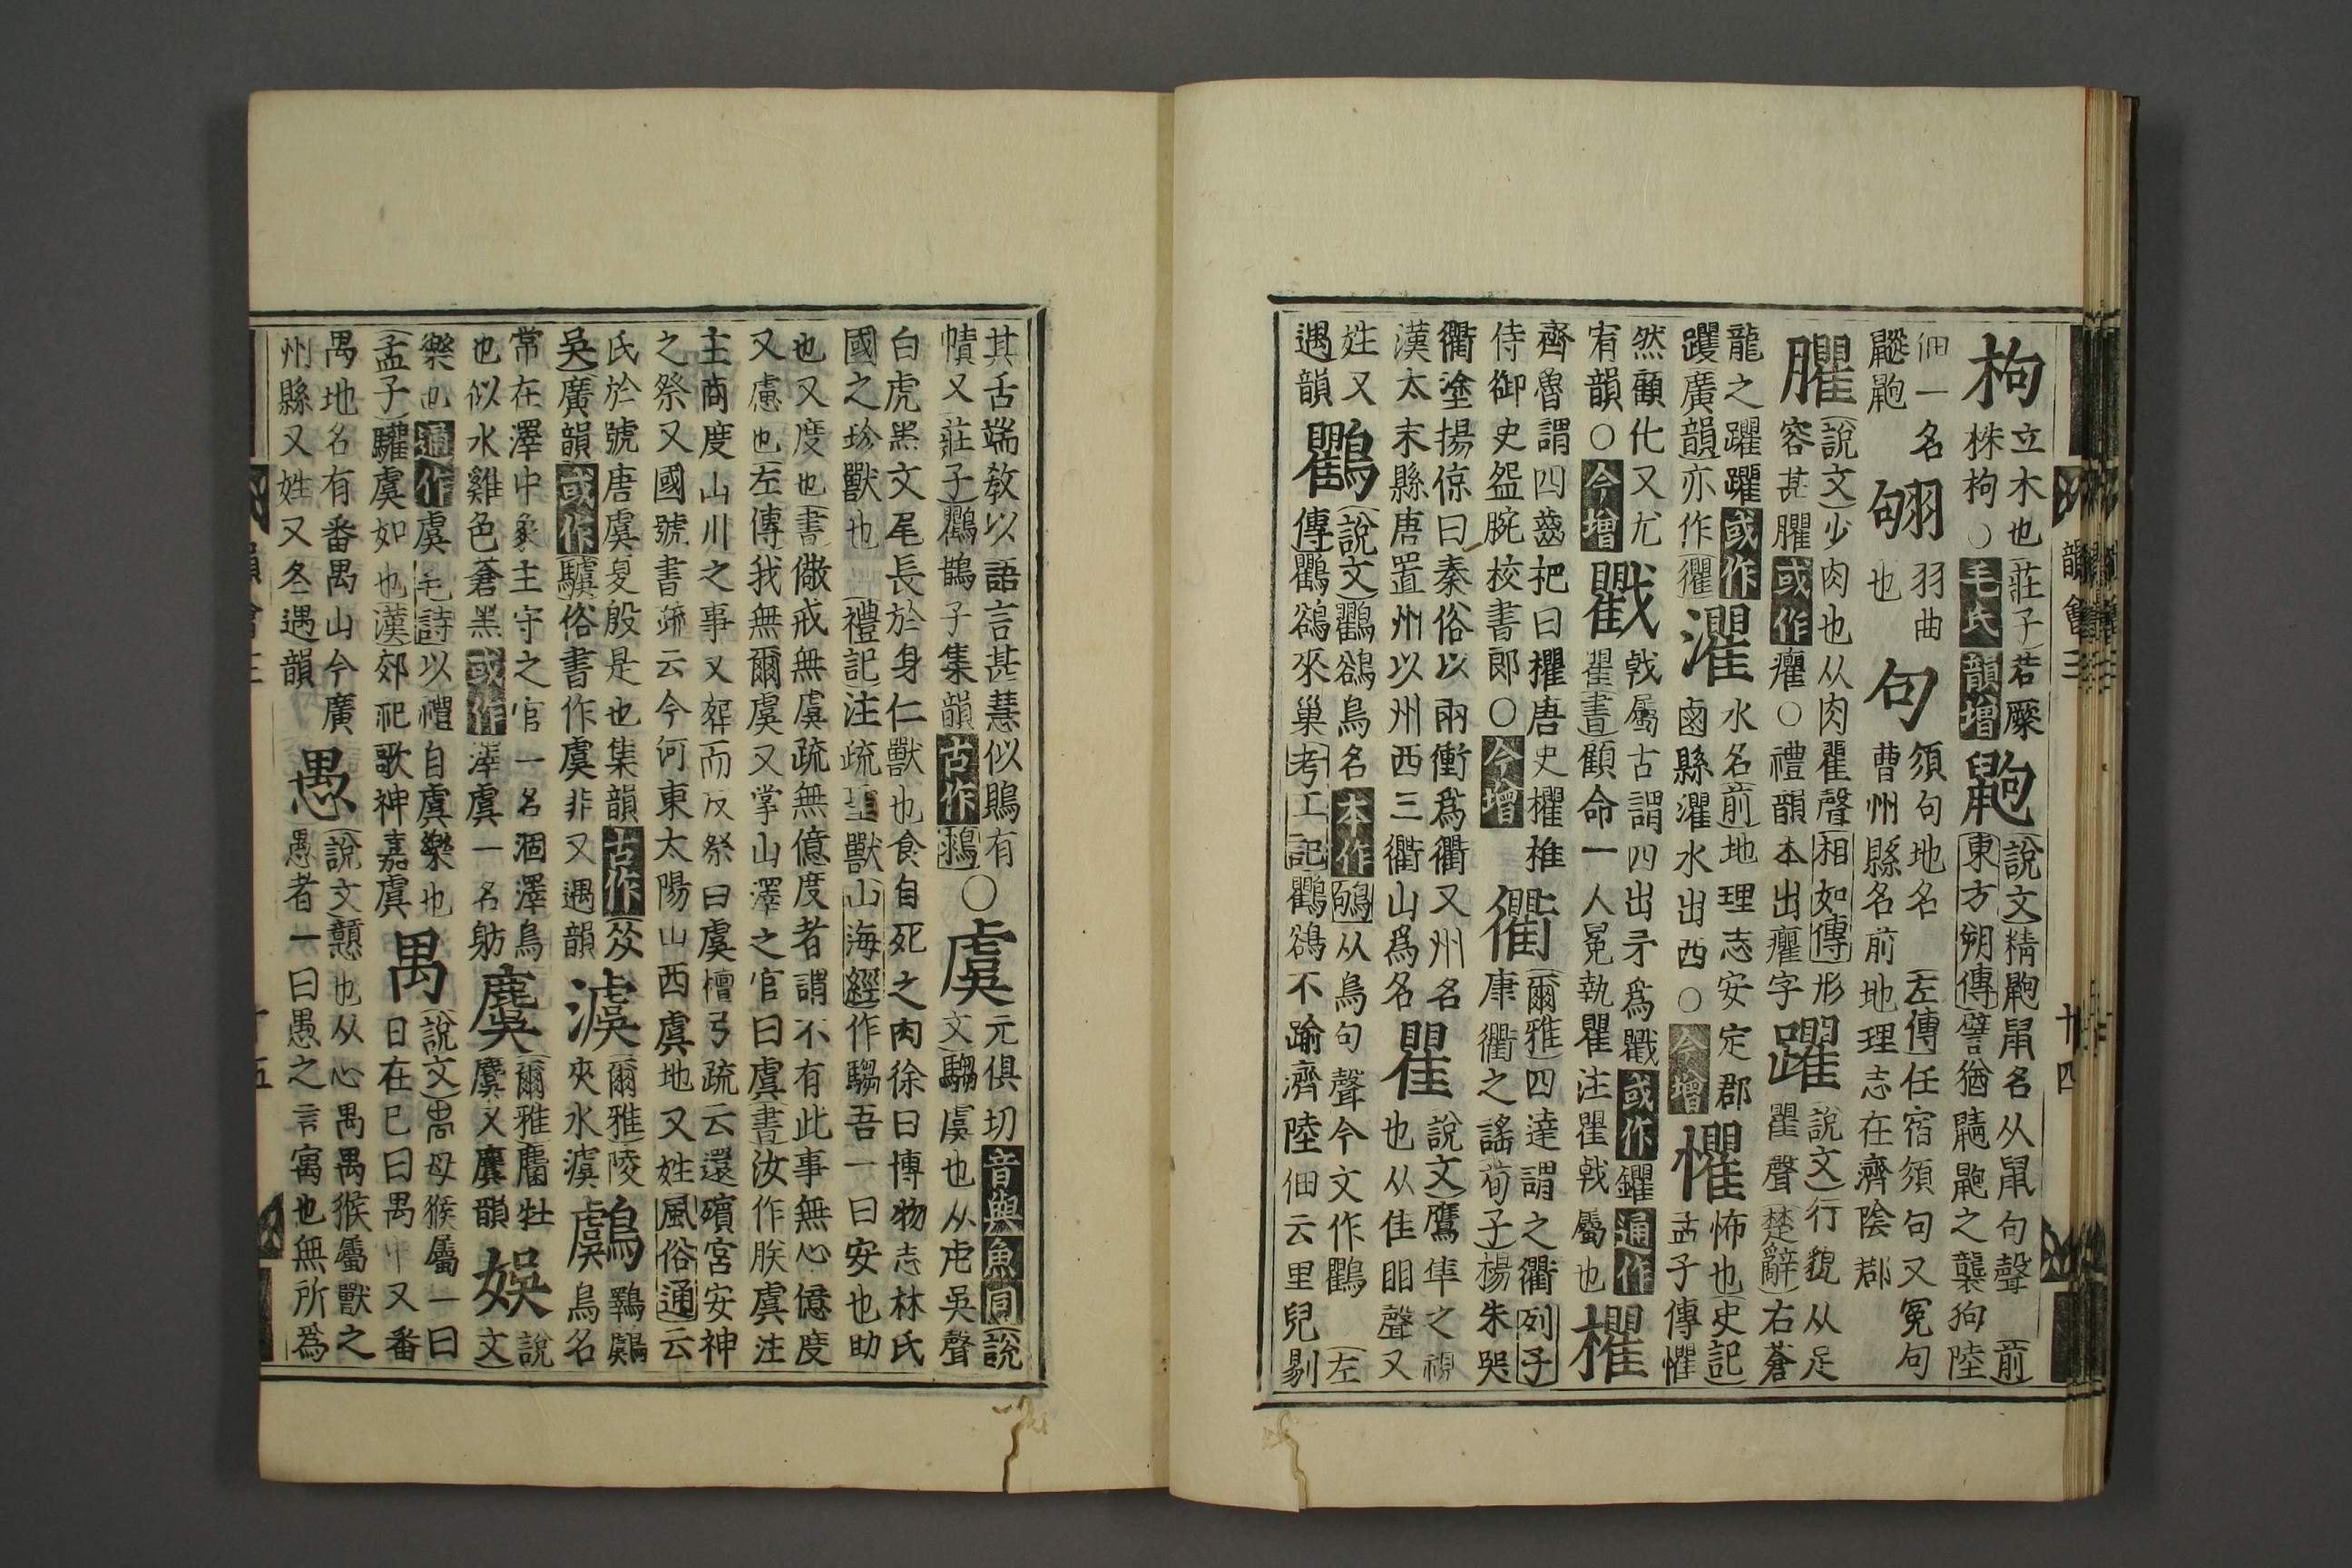 枸
立木也莊子若厥
株枸○毛氏韻增
鼩
說文精鼩鼠名从鼠句聲前
東方朔傳譬猶鼱鼩之襲狗陸
佃一名
鼩
翑
羽曲
也
句
須句地名左傳任宿須句又冤句
曹州縣名前地理志在濟陰郡
臞
說文少肉也从肉瞿聲相如傳形
容甚臞或作癯○禮韻本出癯字
躍
說文行貌从足
瞿聲楚辭右蒼
龍之躍躍或作
躩廣韻亦作忂
灈
水名前地理志安定郡
鹵縣灈水出西○今增
懼
怖也史記
孟子傳懼
然顧化又尤
宥韻○今增
戵
戟屬古謂四出矛爲戵或作鑺通作
瞿書顧命一人冕執瞿注瞿戟屬也
欋
齊魯謂四齒把曰欋唐史欋推
侍御史盌腕校書郎○今增
衢
爾雅四達謂之衢列子
康衢之謠荀子楊朱哭
衢塗揚倞曰秦俗以兩衝爲衢又州名
漢太末縣唐置州以州西三衢山爲名
瞿
說文鷹隼之視
也从隹䀠聲又
姓又
遇韻
鸜
說文鸜鵒鳥名本作鴝从鳥句聲今文作鸜左
傳鸜鵒來巢考工記鸜鵒不踰濟陸佃云里兒剔
韻會三
廿四
其舌端敎以語言甚慧似鴞有
幘又莊子鸜鵲子集韻古作䳔○
虞
元俱切音與魚同說
文騶虞也从虍吳聲
白虎黑文尾長於身仁獸也食自死之肉徐曰博物志林氏
國之珍獸也禮記注疏聖獸山海經作騶吾一曰安也助
也又度也書儆戒無虞疏無億度者謂不有此事無心億度
又慮也左傳我無爾虞又掌山澤之官曰虞書汝作朕虞注
主商度山川之事又葬而反祭曰虞檀弓疏云還殯宮安神
之祭又國號書疏云今河東太陽山西虞地又姓風俗通云
氏於號唐虞夏殷是也集韻古作㒸
吳廣韻或作驥俗書作虞非又遇韻
澞
爾雅陵
夾水澞
鸆
鷄鸆
鳥名
常在澤中象主守之官一名涸澤鳥
也似水雞色蒼黑或作澤虞一名魴
麌
爾雅麕牡
麌又麌韻
娛
說
文
樂也通作虞毛詩以禮自虞樂也
孟子驩虞如也漢郊祀歌神嘉虞
禺
說文禺母猴屬一曰
日在巳曰禺中又番
禺地名有番禺山今廣
州縣又姓又冬遇韻
愚
說文戇也从心禺禺猴屬獸之
愚者一曰愚之言寓也無所爲